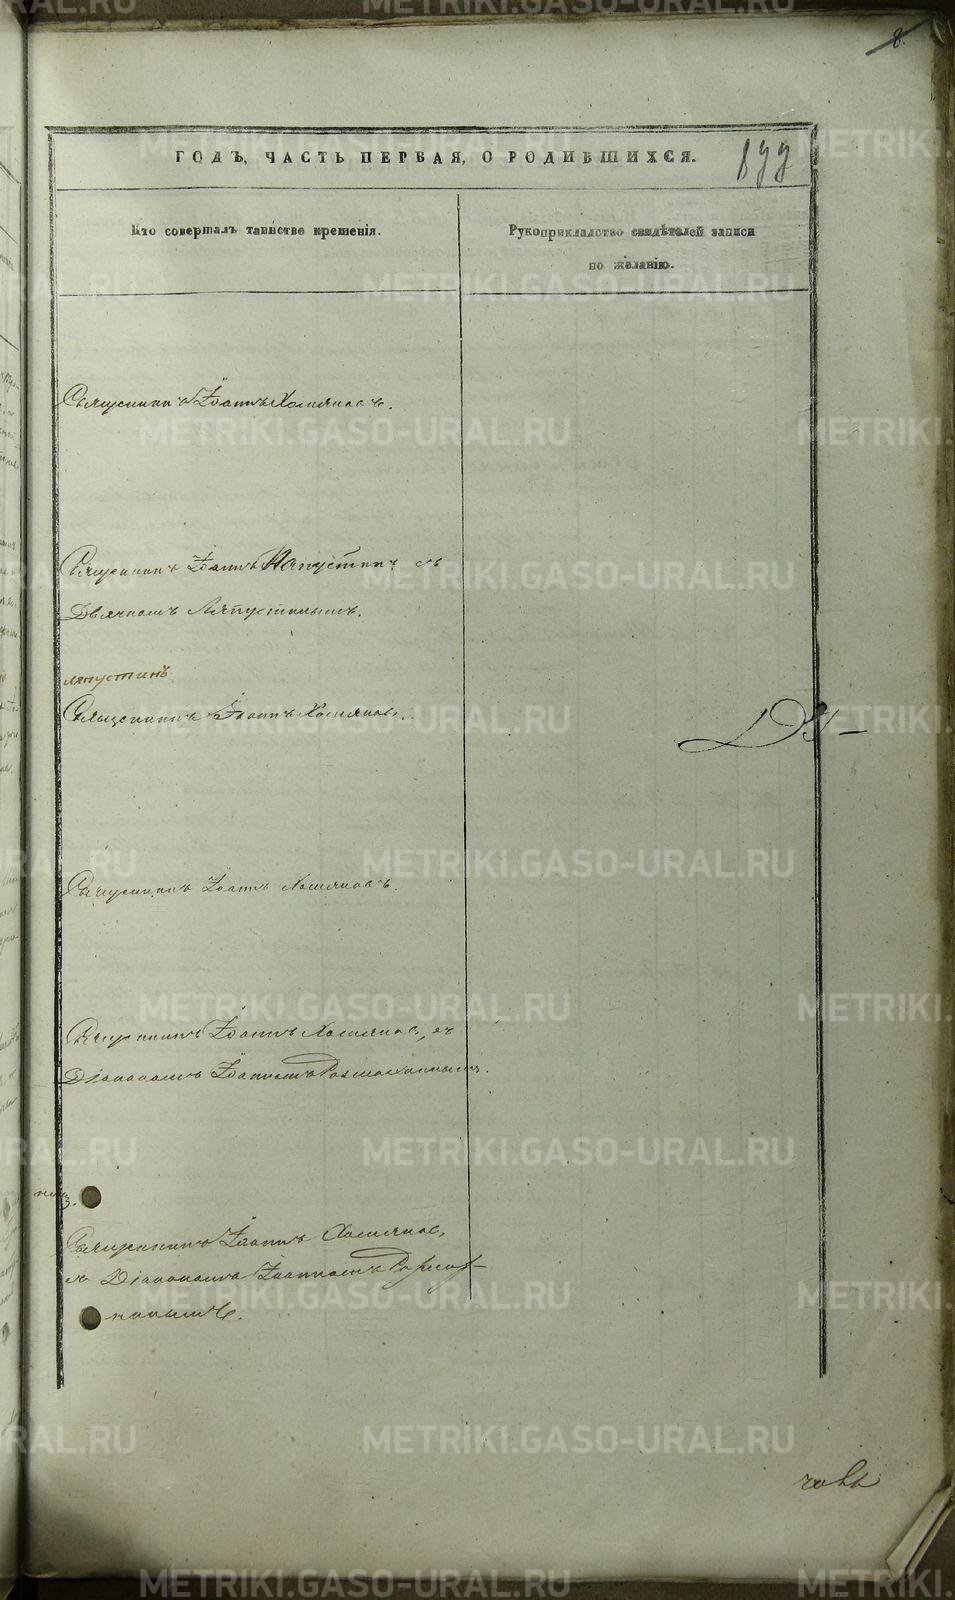 8.
ГОДЪ, ЧАСТЬ ПЕРВАЯ, О РОДИВШИХСЯ.
Кто совершалъ таинство крещенія.
Рукоприкладство свидѣтелей записи
по желанію.
Священникъ Іоаннъ Хомяковъ.
Священникъ Іоаннъ съ
Дьячкомъ Ляпустинымъ.
ляпустинъ
Священникъ Іоаннъ Хомяковъ.
Священникъ Іоаннъ Хомяковъ.
Священникъ Іоаннъ Хомяковъ, съ
Діакономъ Іоанномъ
Священникъ Іоаннъ Хомяковъ,
съ Діакономъ Іоанномъ
METRIKI.GASO-URAL.RU